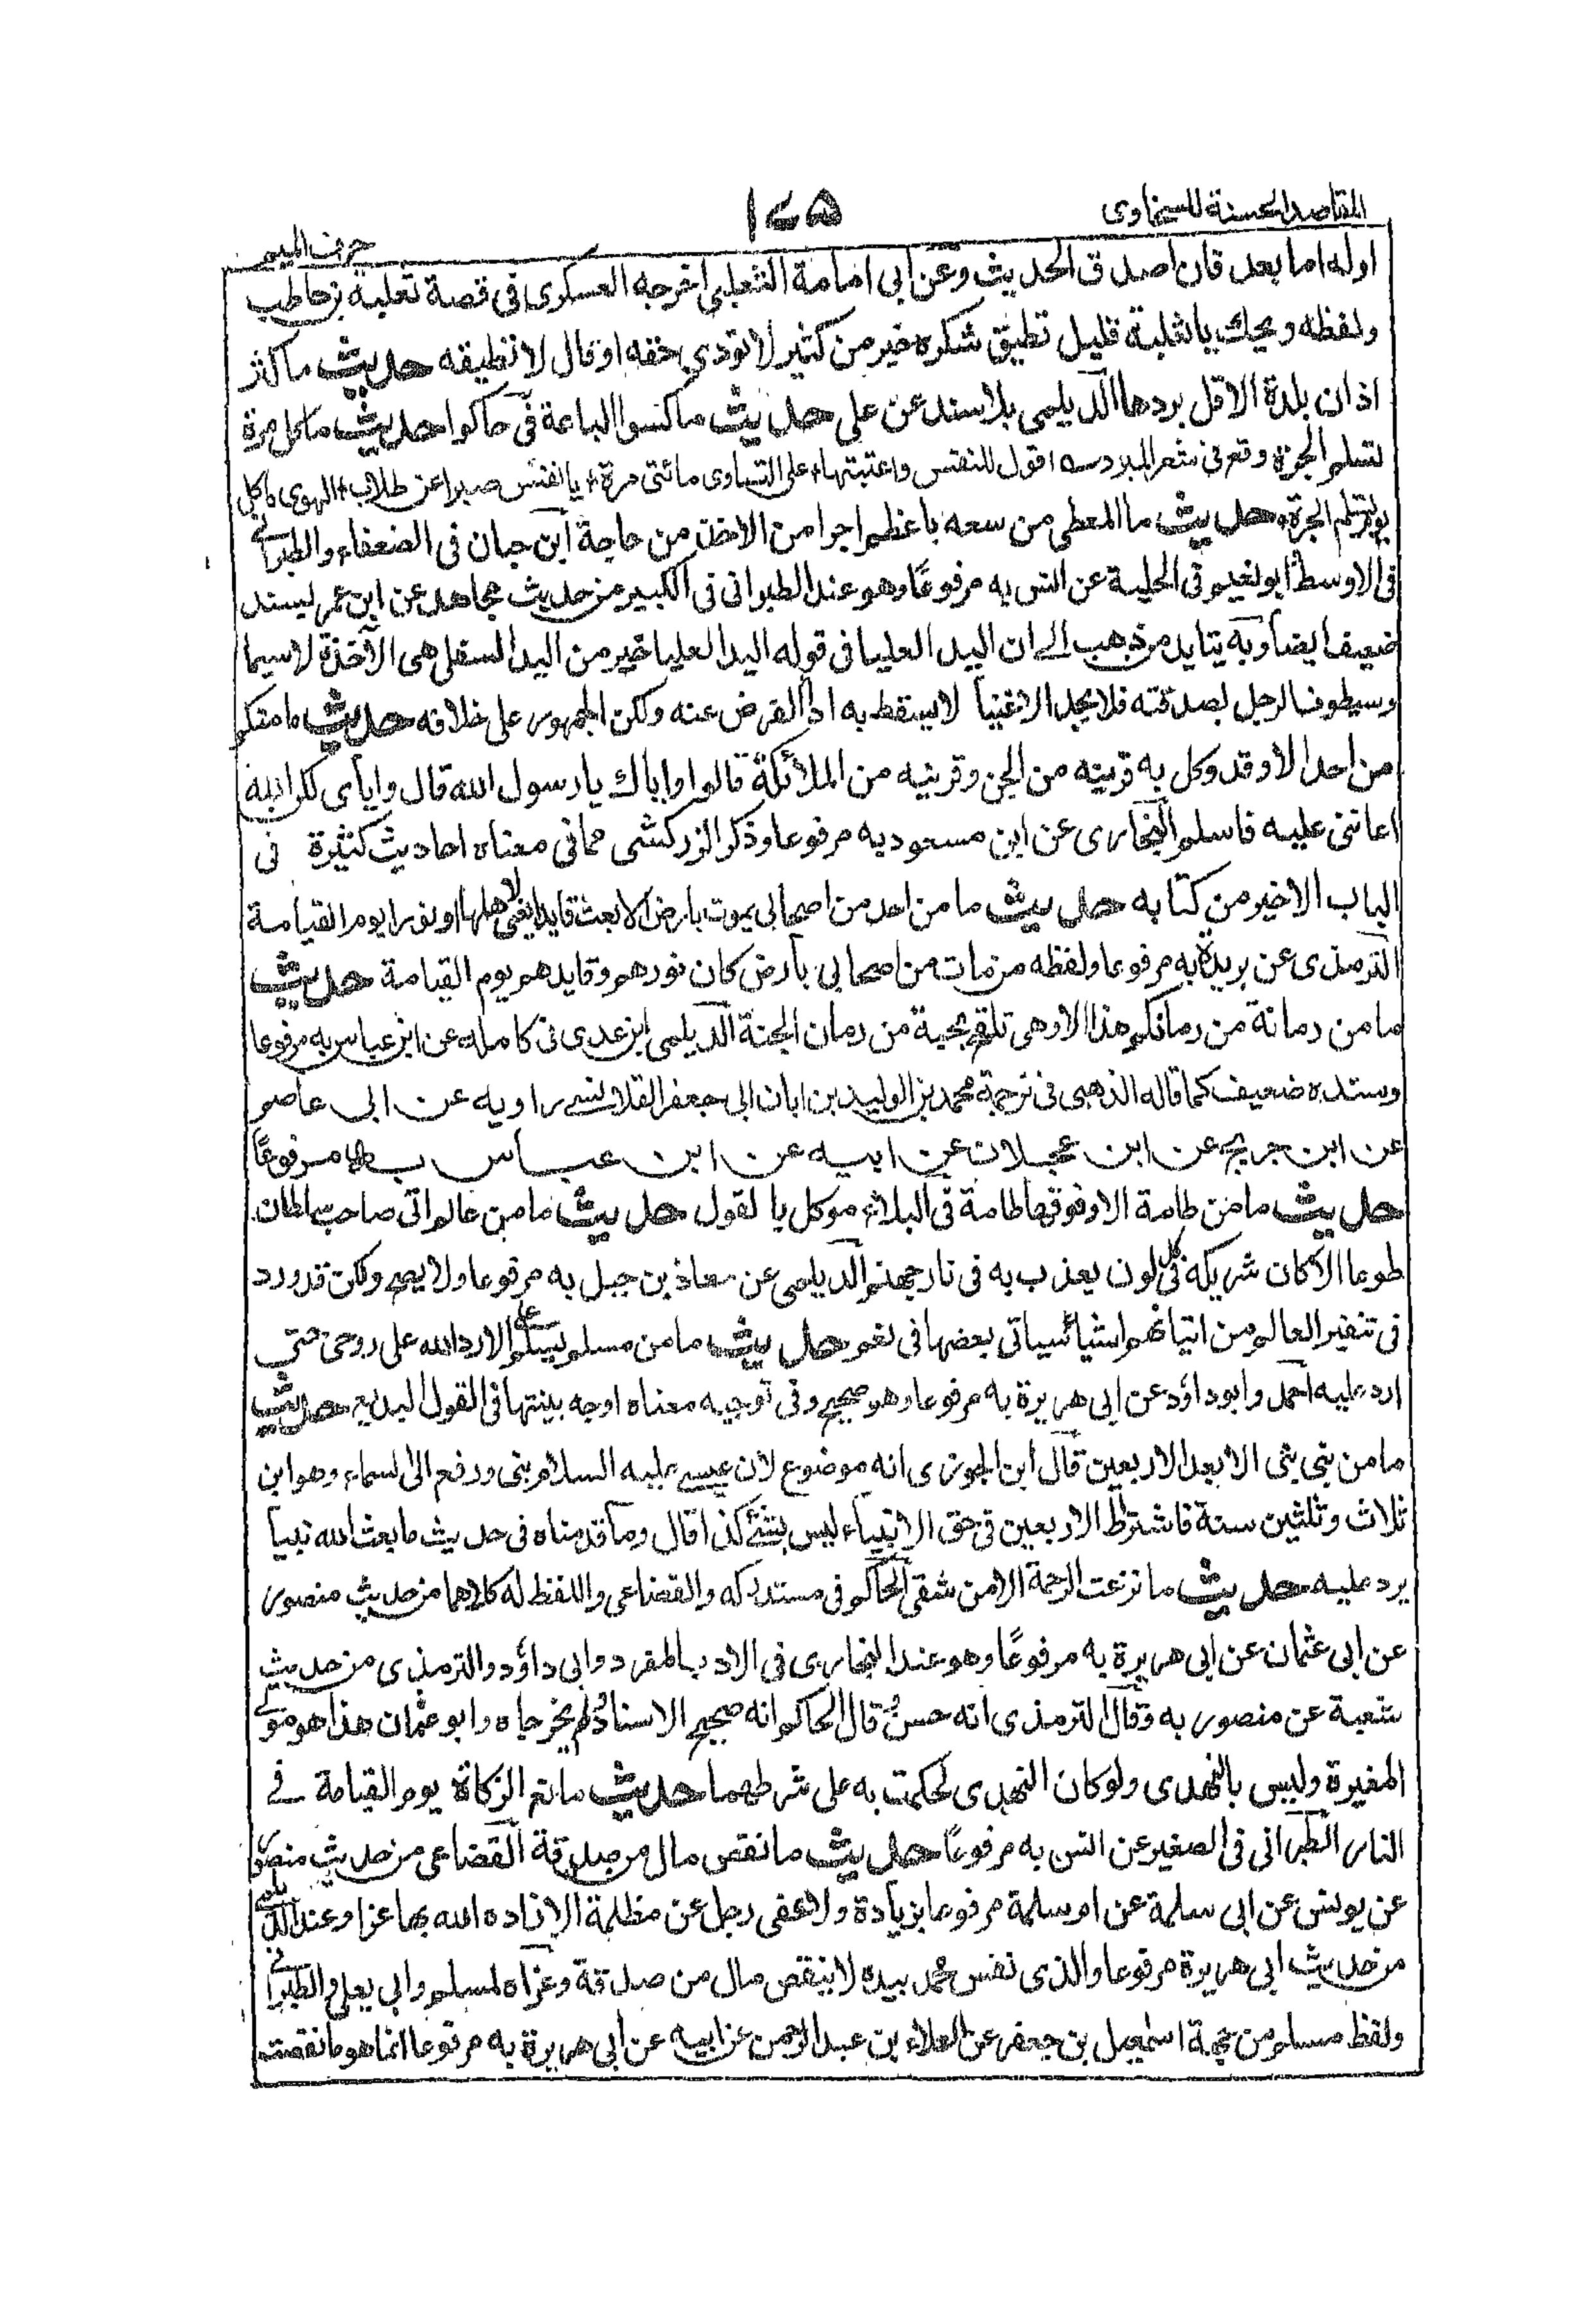 المقاصد الحسنة للسخاوى
١٧٥
حرف الميم
اوله اما بعد فان اصدق الحديث وعن ابى امامة الثعلبى اخرجه العسكرى فى قصة ثعلبة بن حاطب
ولفظه ويحك يا ثعلبة قليل تطيق شكره خير من كثير لا تودى حقه او قال لا تطيقه حديث ما كثر
اذان بلدة الا قل بردها الديلمى بلا سند عن على حديث ما كسوا الباعة فى حاكوا حديث ما كل مرة
تسلم الجرة وقع فى شعر اقول للنفس واعتبتها على التساوى مائتى مرة يا نفس صبرا عن طلاب الهوى ما كل
يوم تسلم الجرة حديث ما المعطى من سعه باعظم اجرا من الاخذ من حاجة ابن حبان فى الضعفاء والطبرانے
فى الاوسط ابو نعيم فى الحلية عن انس به مرفوعًا وهو عند الطبرانى فى الكبير من حديث مجاهد عن ابن عمر بسند
ضعيف ايضا وبه يتايد من ذهب الے ان اليد العليا فى قوله اليد العليا خير من اليد السفلى هى الآخذة لاسيما
وسيطوف الرجل بصدقته فلا يجد الا غنيا لا يسقط به اذا الفرض عنه ولكن الجمهور على خلافه حديث ما منكم
من احد الا وقد وكل به قرينه من الجن وقرينه من الملائكة قالوا واياك يا رسول الله قال واياى لكن الله
اعاننى عليه فاسلم البخارى عن ابن مسعود به مرفوعا وذكر الزركشى مما فى معناه احاديث كثيرة فى
الباب الاخير من كتابه حديث ما من احد من اصحابى يموت بارض الا بعث قايدا يعنى لاهلها او نورا يوم القيامة
الترمذى عن بريدة به مرفوعا ولفظه من مات من اصحابى بارض كان نورهم وقايدهم يوم القيامة حديث
ما من رمانة من رمانكم هذا الا وهى تلقح بحبة من رمان الجنة الديلمى ابن عدى فى كامله عن ابن عباس به مرفوعا
وسنده ضعيف كما قاله الذهبى فى ترجمة محمد بن الوليد بن ابان ابى جعفر القلانسے راويه عن ابى عاصم
عن ابن جريج عن ابن عجلان عن ابيه عن ابن عباس بهذا مرفوعًا
حديث ما من طامة الا وفوقها طامة فى البلاء موكل بالقول حديث ما من عالم اتى صاحب سلطان
طوعا الا كان شريكه فى كل لون يعذب به فى نار جهنم الديلمى عن معاذ بن جبل به مرفوعا ولا يصح ولكن قد ورد
فى تنفير العالم من اتيانهم اشيا سياتى بعضها فى نعم حديث ما من مسلم يسلم على الا رد الله على روحى حتى
ارد عليه احمد وابو داؤد عن ابى هريرة به مرفوعا وهو صحيح وفى توجيه معناه اوجه بينتها فى القول البديع حديث
ما من نبى نبى الا بعد الاربعين قال ابن الجوزى انه موضوع لان عيسے عليه السلام نبى ورفع الى السماء وهو ابن
ثلاث وثلثين سنة فاشتراط الاربعين فى حق الانبياء ليس بشئ كذا قال وما قدمناه فى حديث ما بعث الله نبيا
يرد عليه حديث ما نزعت الرحمة الا من شقى الحاكم فى مستدركه والقضاعى واللفظ له كلاهما من حديث منصور
عن ابى عثمان عن ابى هريرة به مرفوعًا وهو عند البخارى فى الادب المفرد وابى داؤد والترمذى من حديث
شعبة عن منصور به وقال الترمذى انه حسن قال الحاكم انه صحيح الاسناد لم يخرجاه وابو عثمان هذا هو مولے
المغيرة وليس بالنهدى ولو كان النهدى لحكمت به على شرطهما حديث مانع الزكاة يوم القيامة فے
النار الطبرانى فى الصغير عن انس به مرفوعًا حديث ما نقص مال من صدقة القضاعى من حديث منصور
عن يونس عن ابى سلمة عن ام سلمة مرفوعا بزيادة ولا عفى رجل عن مظلمة الا زاده الله بها عزا وعند الديلمے
من حديث ابى هريرة مرفوعا والذى نفس محمد بيده لا ينقص مال من صدقة وعزاه لمسلم وابى يعلى والطبرانے
ولفظ مسلم من جهة اسمعيل بن جعفر عن العلاء بن عبد الرحمن عن ابيه عن ابى هريرة به مرفوعا انما هو ما نقصت